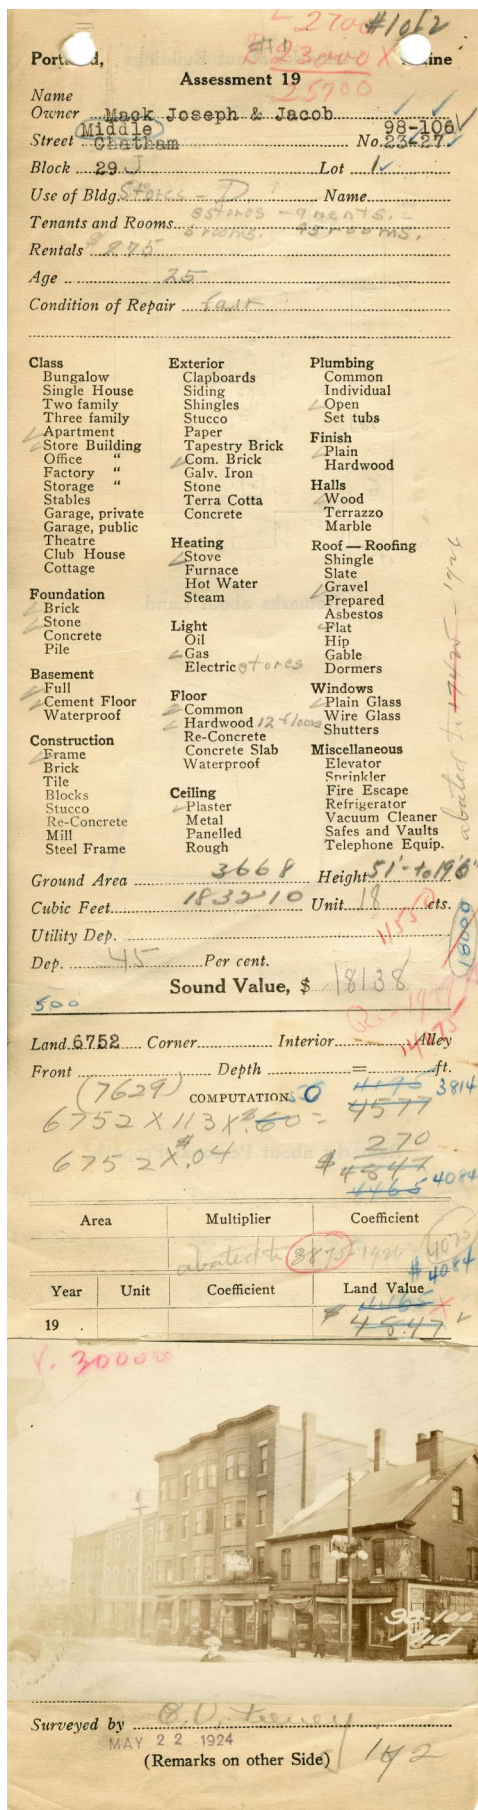 L 2700 #1 of 2
#1
B 23000 X
Portland, Maine
Assessment 19
25700
Name
Owner Mack Joseph & Jacob
Middle 98-106
Street Chatham No. 23-27
Block 29 J Lot 1
Use of Bldg. Stores - D. Name
Tenants and Rooms 8 stores - 9 ments. -
5 rooms. 4 5 rooms.
Rentals $ 275
Age 25
Condition of Repair fair
Class
Bungalow
Single House
Two family
Three family
Apartment
Store Building
Office "
Factory "
Storage "
Stables
Garage, private
Garage, public
Theatre
Club House
Cottage
Foundation
Brick
Stone
Concrete
Pile
Basement
Full
Cement Floor
Waterproof
Construction
Frame
Brick
Tile
Blocks
Stucco
Re-Concrete
Mill
Steel Frame
Exterior
Clapboards
Siding
Shingles
Stucco
Paper
Tapestry Brick
Com. Brick
Galv. Iron
Stone
Terra Cotta
Concrete
Heating
Stove
Furnace
Hot Water
Steam
Light
Oil
Gas
Electric stores
Floor
Common
Hardwood 12-floors
Re-Concrete
Concrete Slab
Waterproof
Ceiling
Plaster
Metal
Panelled
Rough
Plumbing
Common
Individual
Open
Set tubs
Finish
Plain
Hardwood
Halls
Wood
Terrazzo
Marble
Roof — Roofing
Shingle
Slate
Gravel
Prepared
Asbestos
Flat
Hip
Gable
Dormers
Windows
Plain Glass
Wire Glass
Shutters
Miscellaneous
Elevator
Sprinkler
Fire Escape
Refrigerator
Vacuum Cleaner
Safes and Vaults
Telephone Equip.
abated to 17425 - 1926
18000
Ground Area 3668 Height 51'-to 19'6"
Cubic Feet 183210 Unit 18 cts.
11550
Utility Dep.
Dep. 45 Per cent.
Sound Value, $ 18138
500
14475
Land 6752 Corner Interior Alley
Front Depth = ft.
(7629) COMPUTATION 50 4196 3814
6752 X 113 X $.60 = 4577
270
6752 X $.04 $4847
4465 4084
Area Multiplier Coefficient
abated to 3875 - 1926 4075
$ 4084
Year Unit Coefficient Land Value
4465 X
19 $ 4847
V. 30000
98-100
Mid
Surveyed by
MAY 22 1924
(Remarks on other Side) 1 of 2